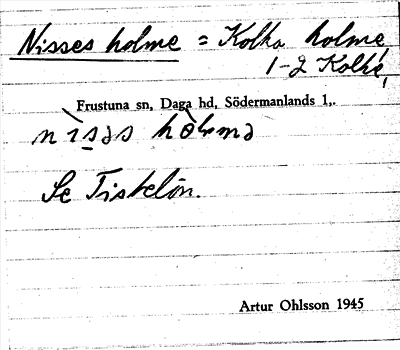 Nisses holme = Kolka holme,
1-2 Kolhé,
Frustuna sn, Daga hd, Södermanlands l,.
nìsəs hòlmə
Se Fiskelön.
Artur Ohlsson 1945